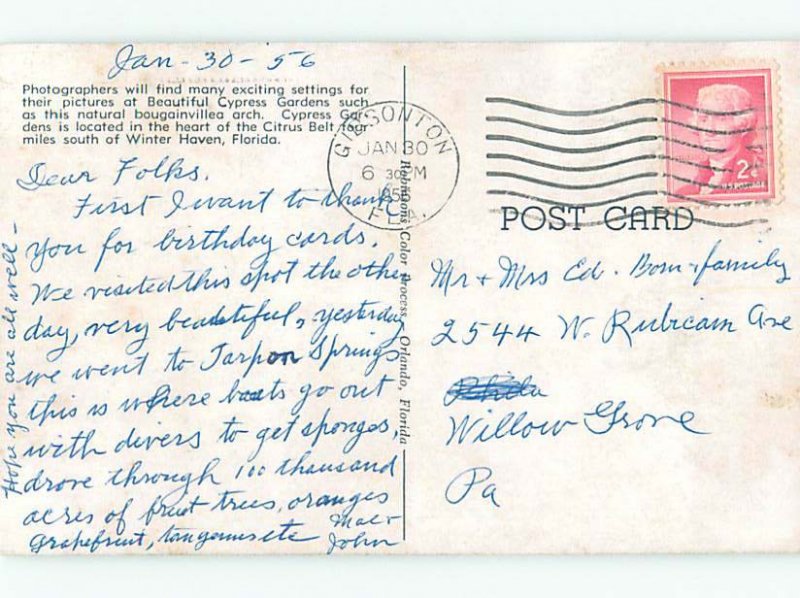 Jan-30-56
Photographers will find many exciting settings for
their pictures at Beautiful Cypress Gardens such
as this natural bougainvillea arch. Cypress Gar-
dens is located in the heart of the Citrus Belt four
miles south of Winter Haven, Florida.
Dear Folks.
First I want to thank
you for birthday cards.
We visited this spot the other
day, very beautiful, yesterday
we went to Tarpon Springs
this is where boats go out
with divers to get sponges,
drove through 100 thousand
acres of fruit trees, oranges
Grapefruit, tangerines etc
Mae +
John
Hope you are all well-
Robinsons Color Process, Orlando, Florida
GIBSONTON
JAN 30
6 30 PM
195
FLA.
2¢
POST CARD
Mr + Mrs Ed. Bom + family
2544 W. Rubicam Ave
Phila
Willow Grove
Pa